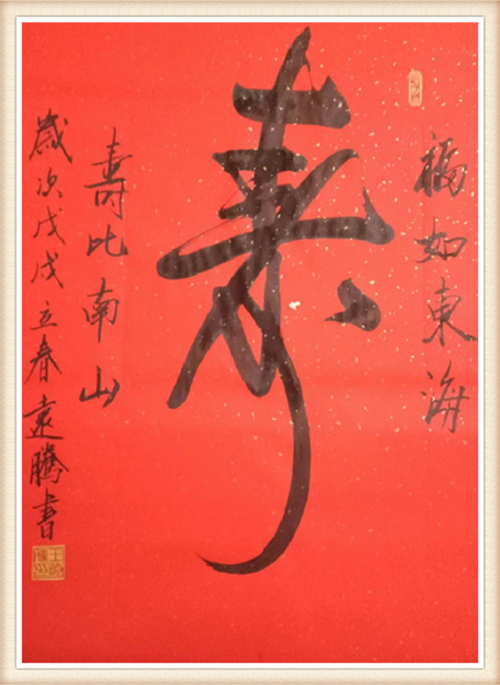 福如東海
壽
壽比南山
歲次戊戌立春遠騰書